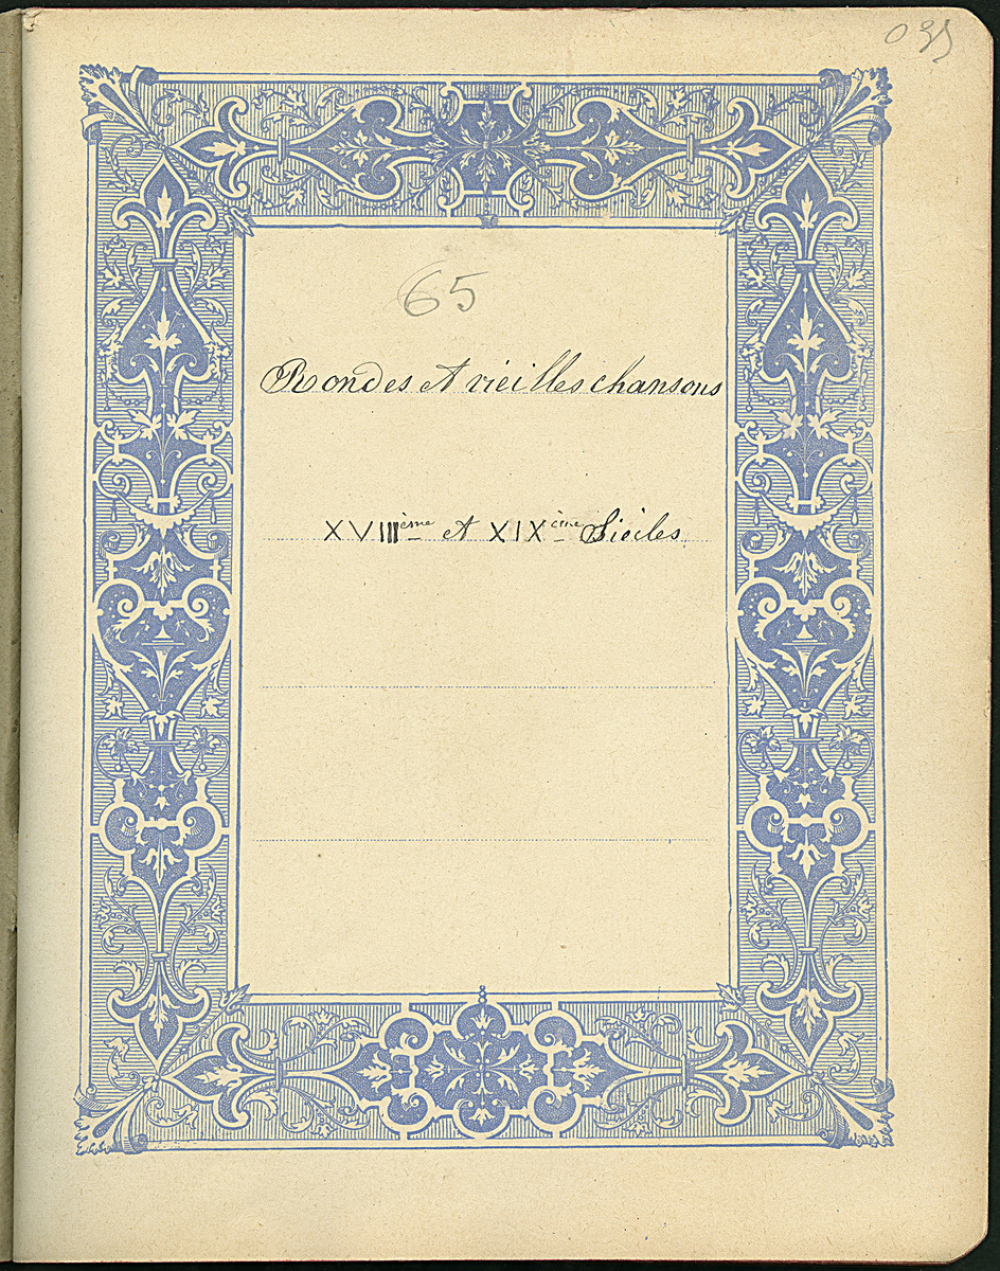 65
Rondes et vieilles chansons
XVIIIème et XIXème Siècles